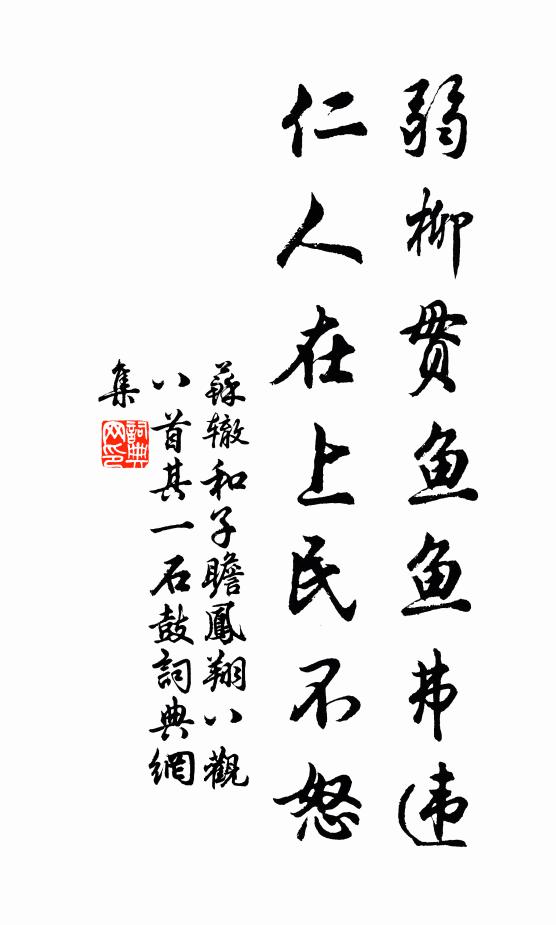 弱柳贯鱼鱼弗违
仁人在上民不怒
蘇辙和子瞻鳳翔八觀
八首其一石鼓詞典網
集
詞典網印